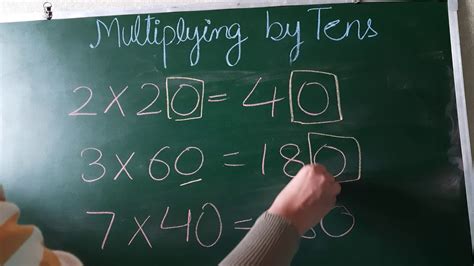 Multiplying by Tens
2 X 20 = 40
3 X 60 = 180
7 X 40 =